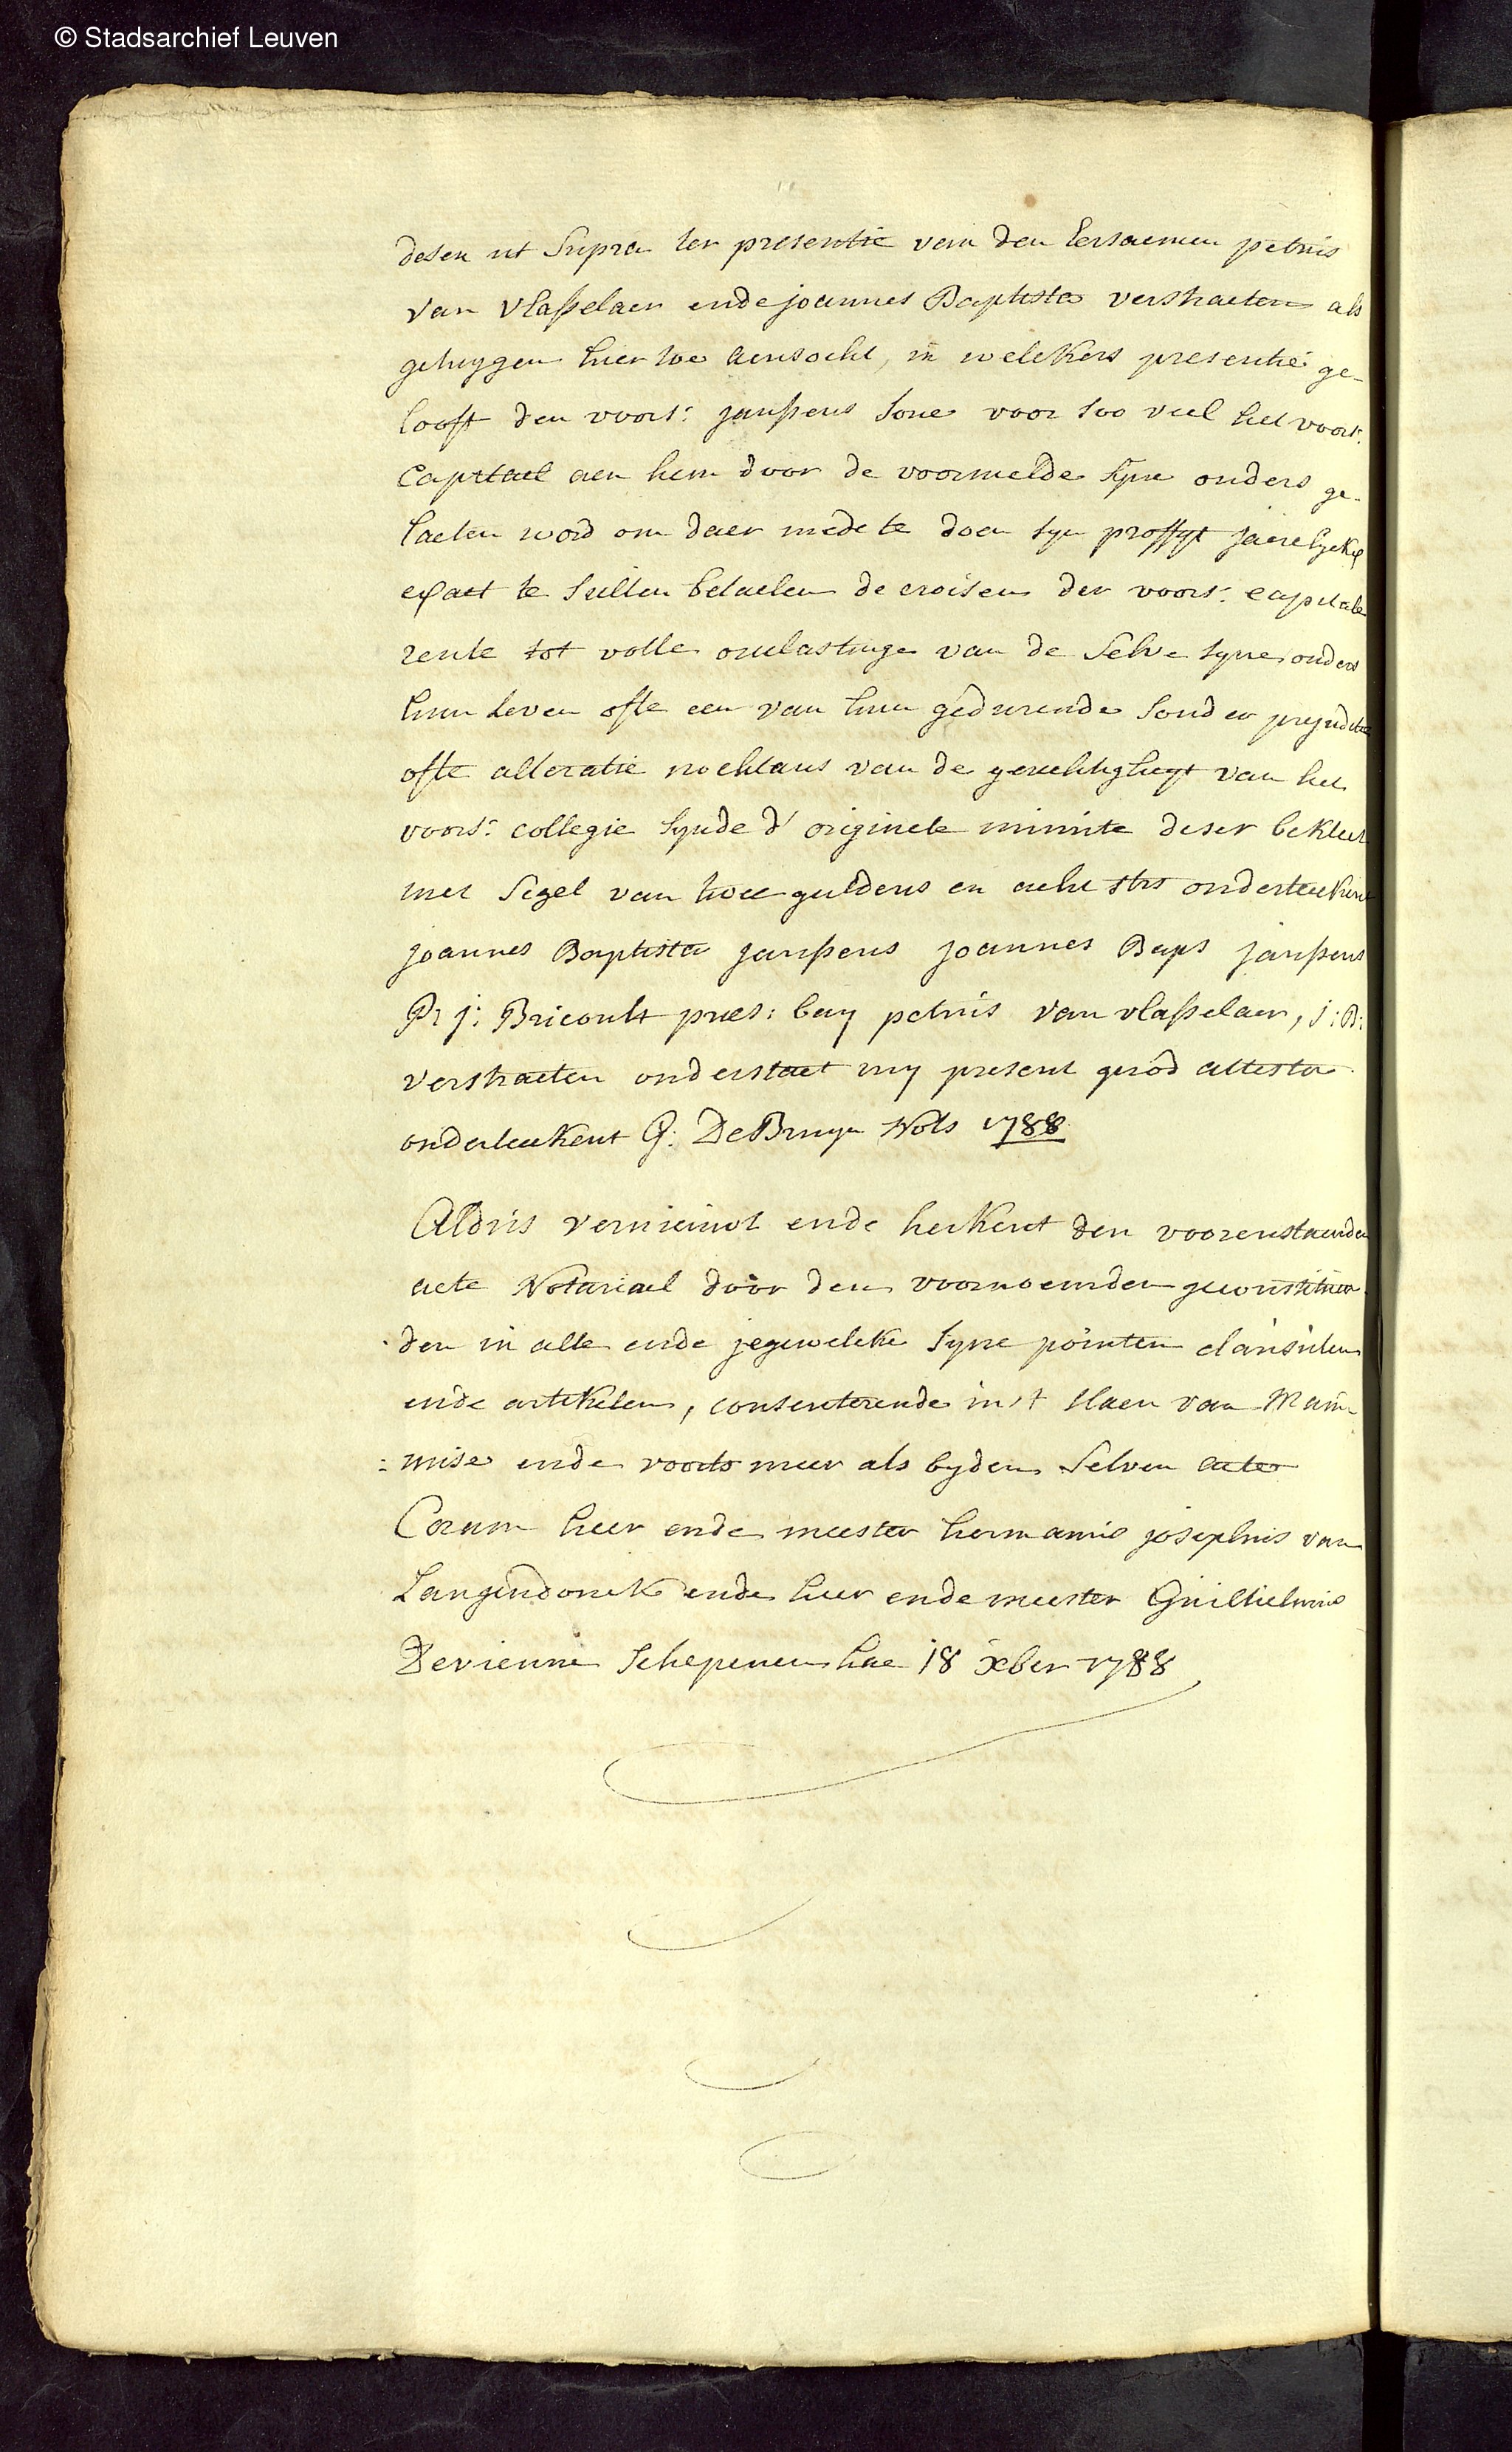 © Stadsarchief Leuven
desen ut Supra ter presentie van den Eersaemen petrus
van vlasselaer ende joannes Baptista verstraeten als
getuygen hier toe aensocht, in welckers presentie ge-
looft den voors: janssens sone voor soo veel het voors:
Capitael aen hem door de voormelde syne ouders ge-
laeten word om daer mede te doen syn proffyt jaerelyckx
exact te sullen betaelen de croisen der voors: capitale
rente tot volle ontlastinge van de selve syne ouders
hun leven ofte een van hun gedurende sonder prejuditie
ofte alteratie nochtans van de gerechtigheyt van het
voors: collegie synde d' originele minute deser bekleet
met segel van twee guldens en acht strs onderteekent
joannes Baptista janssens joannes Baps janssens
P: j: Bricoult pres: bay petrus van vlasselaer, j: B:
verstraeten onderstaet my present geröd attestor
onderteekent G: De Bruyn Nots 1788
Aldus vernieuwt ende herkent den voorenstaenden
acte Notariael door den voornoemden geconstitueer
den in alle ende jegewelcke syne pointen clausulen
ende artikelen, consenterende in't slaen van Main-
:mise ende voorts meer als by den selven acte
Coram heer ende meester hermanus josephus van
Langendonck ende heer ende meester Guillielmus
Devienne schepenen hac 18 xber 1788